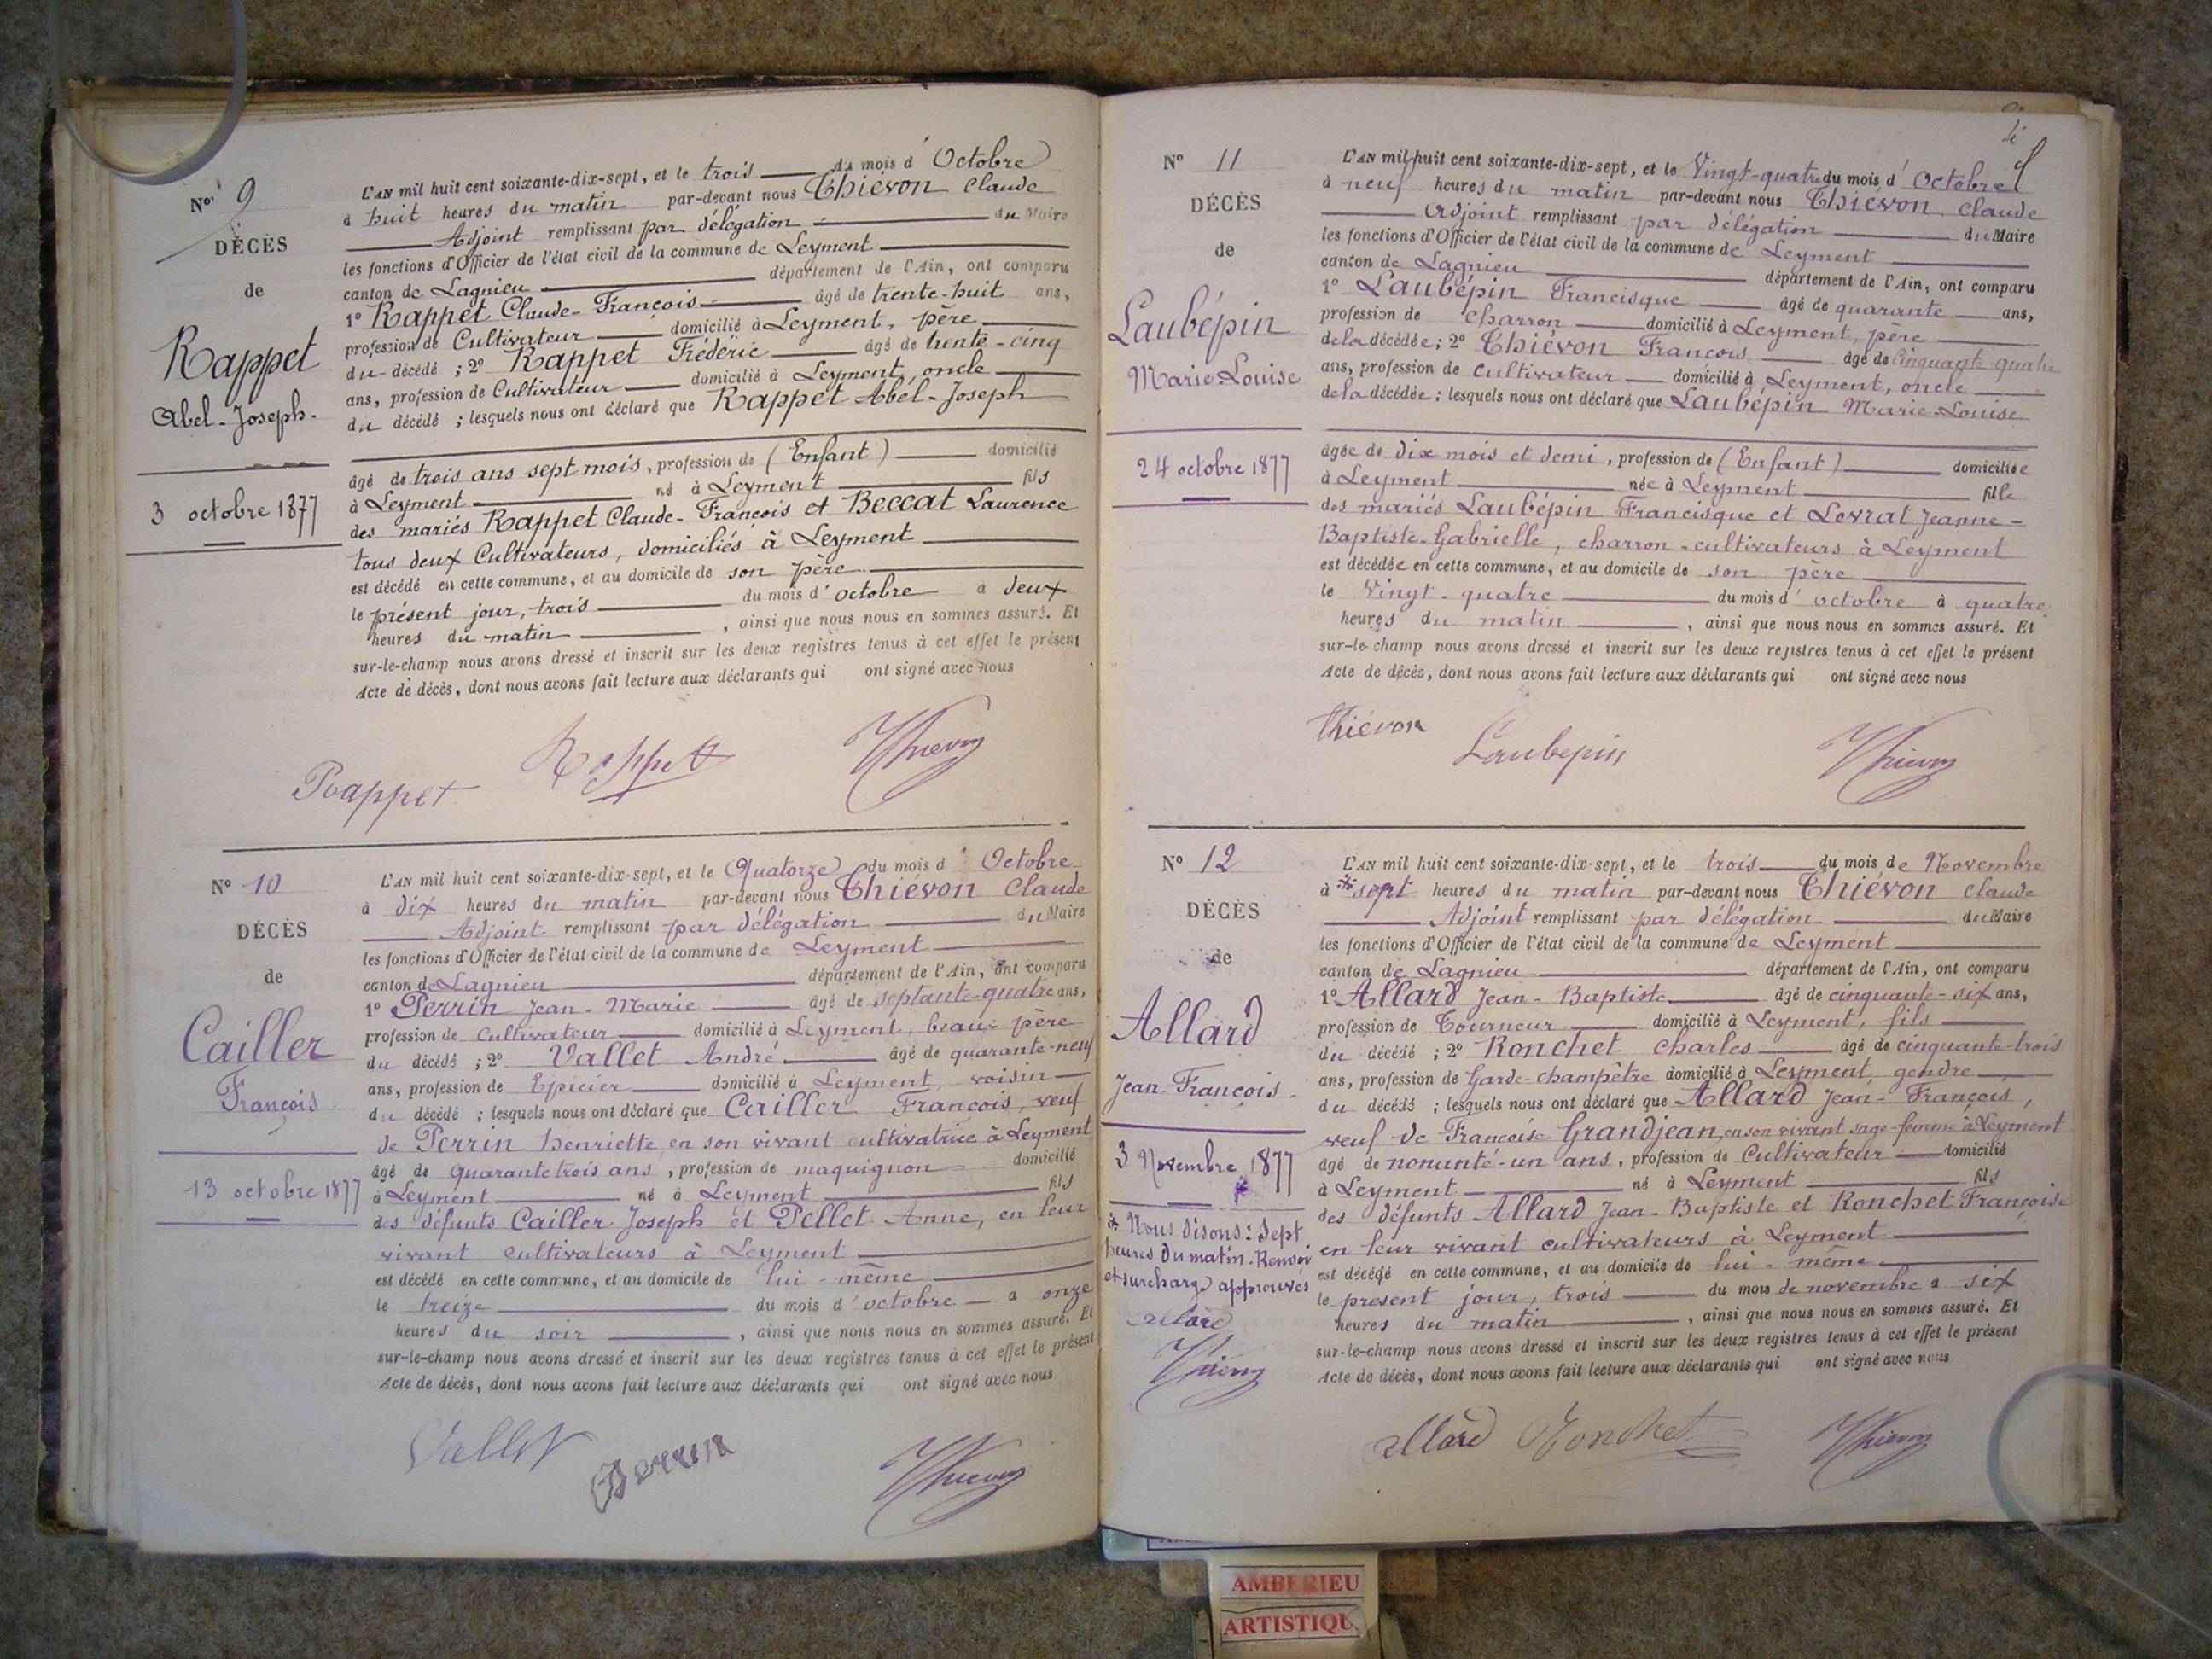 N° 9
DÉCÈS
de
Rappet
Abel-Joseph-
3 octobre 1877
L'AN mil huit cent soixante-dix-sept, et le trois du mois d'Octobre
à huit heures du matin par-devant nous Thiévon Claude
Adjoint remplissant par délégation du Maire
les fonctions d'Officier de l'état civil de la commune de Leyment
canton de Lagnieu département de l'Ain, ont comparu
1° Rappet Claude-François âgé de trente-huit ans,
profession de Cultivateur domicilié à Leyment, père
du décédé ; 2° Rappet Frédéric âgé de trente-cinq
ans, profession de Cultivateur domicilié à Leyment, oncle
du décédé ; lesquels nous ont déclaré que Rappet Abel-Joseph
âgé de trois ans sept mois, profession de (Enfant) domicilié
à Leyment né à Leyment fils
des mariés Rappet Claude-François et Beccat Laurence
tous deux Cultivateurs, domiciliés à Leyment
est décédé en cette commune, et au domicile de son père
le présent jour, trois du mois d'octobre à deux
heures du matin, ainsi que nous nous en sommes assuré. Et
sur-le-champ nous avons dressé et inscrit sur les deux registres tenus à cet effet le présent
Acte de décès, dont nous avons fait lecture aux déclarants qui ont signé avec nous
Rappet Rappet Thiévon
N° 10
DÉCÈS
de
Cailler
François
13 octobre 1877
L'AN mil huit cent soixante-dix-sept, et le Quatorze du mois d'Octobre
à dix heures du matin par-devant nous Thiévon Claude
Adjoint remplissant par délégation du Maire
les fonctions d'Officier de l'état civil de la commune de Leyment
canton de Lagnieu département de l'Ain, ont comparu
1° Perrin Jean-Marie âgé de septante-quatre ans,
profession de cultivateur domicilié à Leyment, beau-père
du décédé ; 2° Vallet André âgé de quarante-neuf
ans, profession de Epicier domicilié à Leyment, voisin
du décédé ; lesquels nous ont déclaré que Cailler François, veuf
de Perrin henriette, en son vivant cultivatrice à Leyment
âgé de quarante trois ans, profession de maquignon domicilié
à Leyment né à Leyment fils
des défunts Cailler Joseph et Pellet Anne, en leur
vivant cultivateurs à Leyment
est décédé en cette commune, et au domicile de lui-même
le treize du mois d'octobre à onze
heures du soir, ainsi que nous nous en sommes assuré. Et
sur-le-champ nous avons dressé et inscrit sur les deux registres tenus à cet effet le présent
Acte de décès, dont nous avons fait lecture aux déclarants qui ont signé avec nous
Vallet Perrin Thiévon
N° 11
DÉCÈS
de
Laubépin
Marie-Louise
24 octobre 1877
L'AN mil huit cent soixante-dix-sept, et le Vingt-quatre du mois d'Octobre
à neuf heures du matin par-devant nous Thiévon Claude
Adjoint remplissant par délégation du Maire
les fonctions d'Officier de l'état civil de la commune de Leyment
canton de Lagnieu département de l'Ain, ont comparu
1° Laubépin Francisque âgé de quarante ans,
profession de charron domicilié à Leyment, père
de la décédée ; 2° Thiévon François âgé de cinquante-quatre
ans, profession de cultivateur domicilié à Leyment, oncle
de la décédée ; lesquels nous ont déclaré que Laubépin Marie-Louise
âgée de dix mois et demi, profession de (Enfant) domiciliée
à Leyment née à Leyment fille
des mariés Laubépin Francisque et Levrat Jeanne-
Baptiste-Gabrielle, charron-cultivateurs à Leyment
est décédée en cette commune, et au domicile de son père
le vingt-quatre du mois d'octobre à quatre
heures du matin, ainsi que nous nous en sommes assuré. Et
sur-le-champ nous avons dressé et inscrit sur les deux registres tenus à cet effet le présent
Acte de décès, dont nous avons fait lecture aux déclarants qui ont signé avec nous
thiévon Laubepin Thiévon
N° 12
DÉCÈS
de
Allard
Jean-François-
3 Novembre 1877
Nous disons : Sept
heures du matin. Renvoi
et surcharge approuvés
allard
Thiévon
L'AN mil huit cent soixante-dix-sept, et le trois du mois de Novembre
à sept heures du matin par-devant nous Thiévon Claude
Adjoint remplissant par délégation du Maire
les fonctions d'Officier de l'état civil de la commune de Leyment
canton de Lagnieu département de l'Ain, ont comparu
1° Allard Jean-Baptiste âgé de cinquante-six ans,
profession de Tourneur domicilié à Leyment, fils
du décédé ; 2° Ronchet Charles âgé de cinquante-trois
ans, profession de Garde-champêtre domicilié à Leyment, gendre
du décédé ; lesquels nous ont déclaré que Allard Jean-François,
veuf de Françoise Grandjean, en son vivant sage-femme à Leyment
âgé de nonante-un ans, profession de Cultivateur domicilié
à Leyment né à Leyment fils
des défunts Allard Jean-Baptiste et Ronchet Françoise
en leur vivant cultivateurs à Leyment
est décédé en cette commune, et au domicile de lui-même
le present jour, trois du mois de novembre à six
heures du matin, ainsi que nous nous en sommes assuré. Et
sur-le-champ nous avons dressé et inscrit sur les deux registres tenus à cet effet le présent
Acte de décès, dont nous avons fait lecture aux déclarants qui ont signé avec nous
allard Ronchet Thiévon
AMBERIEU
ARTISTIQU